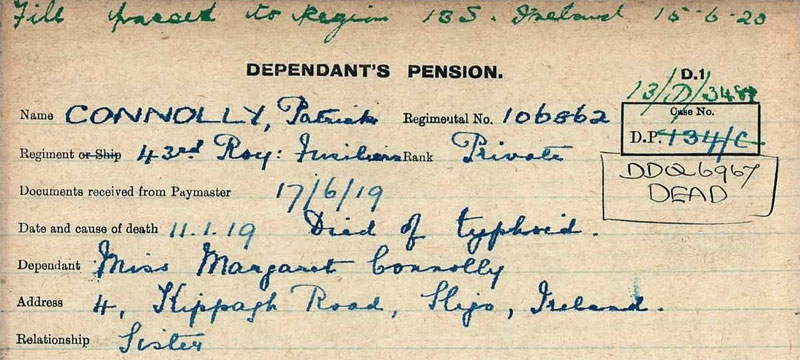 File passed to Region 13S. Ireland 15-6-20
DEPENDANT'S PENSION.
D.1
13/D/348
Name CONNOLLY, Patrick Regimental No. 106862
Case No.
D.P. 134/C
Regiment or Ship 43rd Roy: Fusiliers Rank Private
DDQ6967
DEAD
Documents received from Paymaster 17/6/19
Date and cause of death 11.1.19 Died of typhoid.
Dependant Miss Margaret Connolly
Address 4, Kippagh Road, Sligo, Ireland.
Relationship Sister